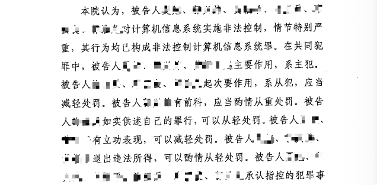 本院认为，被告人
对计算机信息系统实施非法控制，情节特别严
重，其行为均已构成非法控制计算机信息系统罪。在共同犯
罪中，被告人主要作用，系主犯。
被告人起次要作用，系从犯，应当
减轻处罚。被告人有前科，应当酌情从重处罚。被告
人如实供述自己的罪行，可以从轻处罚。被告人
有立功表现，可以减轻处罚。被告人
退出违法所得，可以酌情从轻处罚。被告人
承认指控的犯罪事